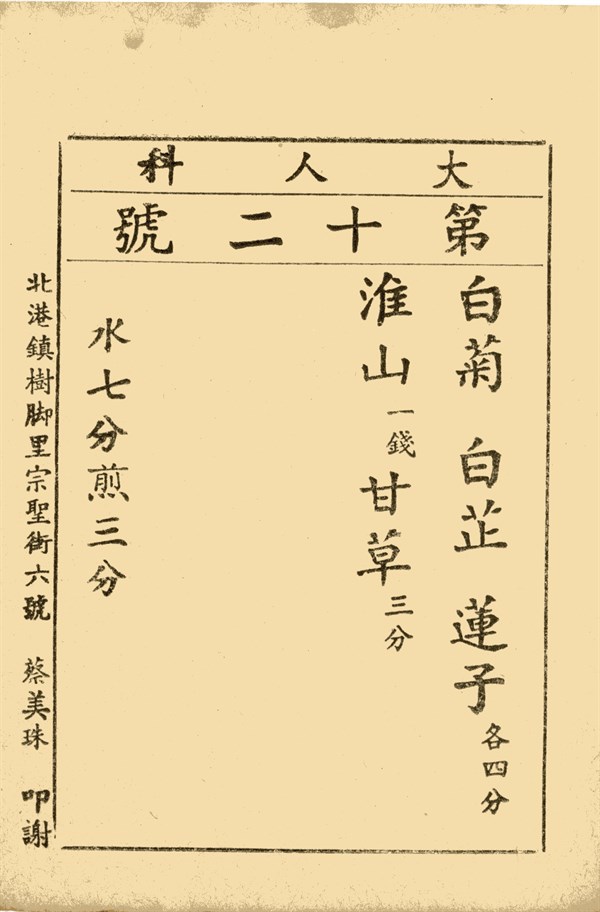 大人科
第十二號
白菊 白芷 蓮子 各四分
淮山 一錢 甘草 三分
水七分煎三分
北港鎮樹脚里宗聖街六號 蔡美珠 叩謝